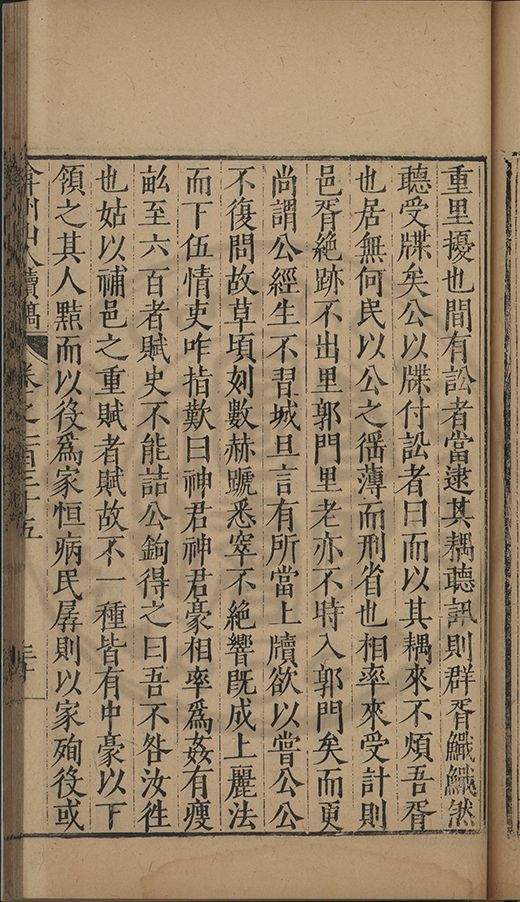 重里擾也間有訟者當逮其耦聽訊則群胥鱵鱵然
聽受牒矣公以牒付訟者曰而以其耦來不煩吾胥
也居無何民以公之徭薄而刑省也相率來受計則
邑胥絶跡不出里郭門里老亦不時入郭門矣而更
尚謂公經生不習城旦言有所當上牘欲以嘗公公
不復問故草頃刻數赫蹏悉窣不絶響既成上麗法
而下伍情吏咋指歎曰神君神君豪相率爲姦有瘦
畝至六百者賦史不能詰公鉤得之曰吾不咎汝徃
也姑以補邑之重賦者賦故不一種皆有中豪以下
領之其人㸃而以役爲家恒病民孱則以家殉役或
弇州山人續稿 卷之一百三十五 二十